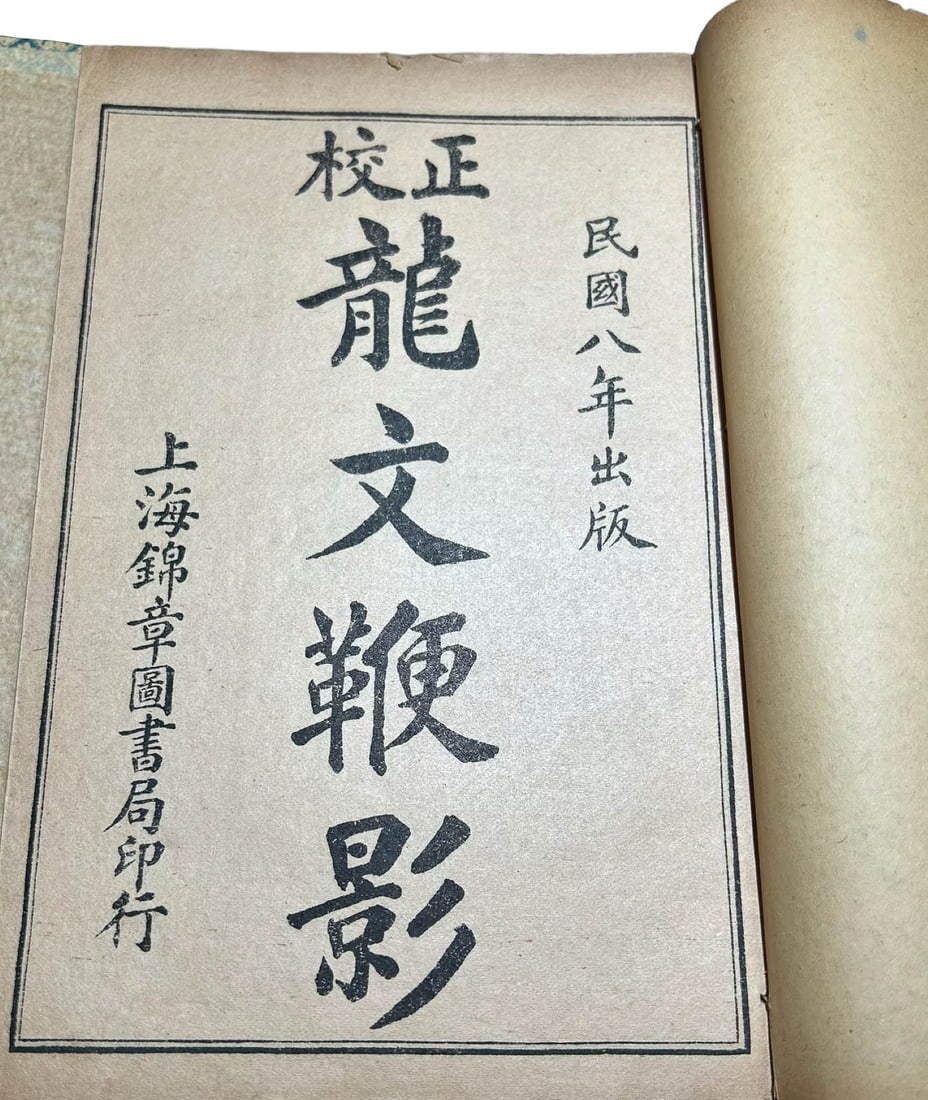 民國八年出版
正校
龍文鞭影
上海錦章圖書局印行